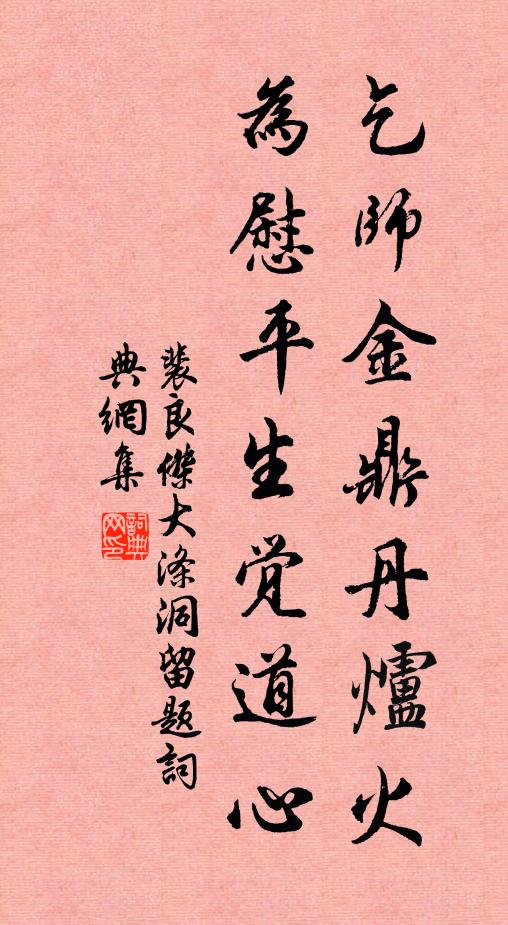 乞師金鼎丹爐火
為慰平生覚道心
裴良傑大滌洞留題詞
典網集
詞典網印